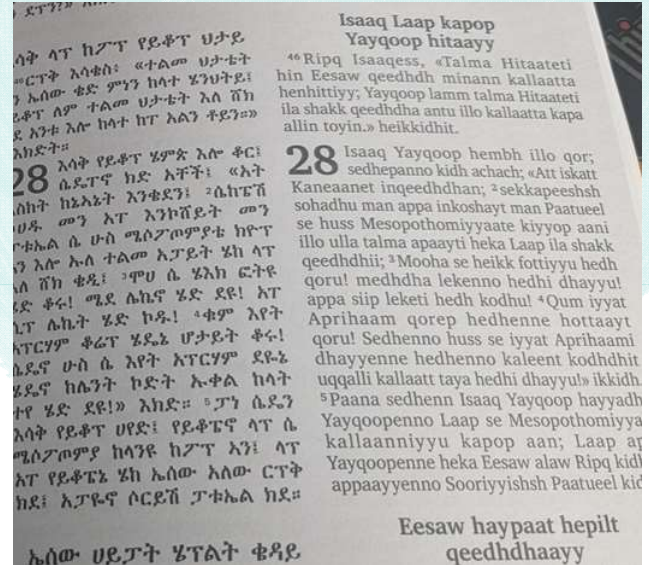 ሳቅ ላፕ ከፖፕ የይቆፕ ሁታይ
ርፕቅ እሳቄስ፤ «ተልመ ሁታቴት
ኤሰው ቄድ ምነን ከላተ ሄንህትይ፤
ለም ተልመ ሁታቴት እለ ሸክ
አንቱ እሎ ከላተ ከፐ አልን ቶይን።»
28 እሳቅ የይቆፕ ሄምጵ እሎ ቆር፤
ሴዴፐኖ ክድ አቸች፤ «አት
መን አፐ እንኮሸይት መን
ሴ ሁስ ሜሶፖጦምያቴ ክዮፕ
እሎ ኡለ ተልመ አፓይት ሄከ ላፕ
ሸክ ቄዲ፤ ³ሞሀ ሴ ሄእክ ፎትዩ
ቆሩ! ሜደ ሌኬኖ ሄድ ደዩ! አፐ
ሌኬት ሄድ ኮዱ! ⁴ቁም እየት
አፕርሃም ቆሬፕ ሄዴኔ ሆታይት ቆሩ!
ሴዴኖ ሁስ ሴ እየት አፕርሃም ደዬኔ
ሄዴኖ ከሌንት ኮድት ኡቀል ከላት
ሄድ ደዩ!» እክድ። ⁵ፓነ ሴዴን
እሳቅ የይቆፕ ሀየድ፤ የይቆፔኖ ላፕ ሴ
ሜሶፖጦምያ ከላንዩ ከፖፕ አን፤ ላፕ
አፐ የይቆፔኔ ሄከ ኤሰው አለው ርፕቅ
ክደ፤ አፓዬኖ ሶርይሽ ፓቱኤል ክደ።
ኤሰው ሀይፓት ሄፕልት ቄዳይ
Isaaq Laap kapop
Yayqoop hitaayy
⁴⁶Ripq Isaaqess, «Talma Hitaateti
hin Eesaw qeedhdh minann kallaatta
henhittiyy; Yayqoop lamm talma Hitaateti
ila shakk qeedhdha antu illo kallaatta kapa
allin toyin.» heikkidhit.
28 Isaaq Yayqoop hembh illo qor;
sedhepanno kidh achach; «Att iskatt
Kaneaanet inqeedhdhan; ²sekkapeeshsh
sohadhu man appa inkoshayt man Paatueel
se huss Mesopothomiyyaate kiyyop aani
illo ulla talma apaayti heka Laap ila shakk
qeedhdhii; ³Mooha se heikk fottiyyu hedh
qoru! medhdha lekenno hedhi dhayyu!
appa siip leketi hedh kodhu! ⁴Qum iyyat
Aprihaam qorep hedhenne hottaayt
qoru! Sedhenno huss se iyyat Aprihaami
dhayyenne hedhenno kaleent kodhdhit
uqqalli kallaatt taya hedhi dhayyu!» ikkidh.
⁵Paana sedhenn Isaaq Yayqoop hayyadh
Yayqoopenno Laap se Mesopothomiyya
kallaanniyyu kapop aan; Laap ap
Yayqoopenne heka Eesaw alaw Ripq kidh
appaayyenno Sooriyyishsh Paatueel kid
Eesaw haypaat hepilt
qeedhdhaayy